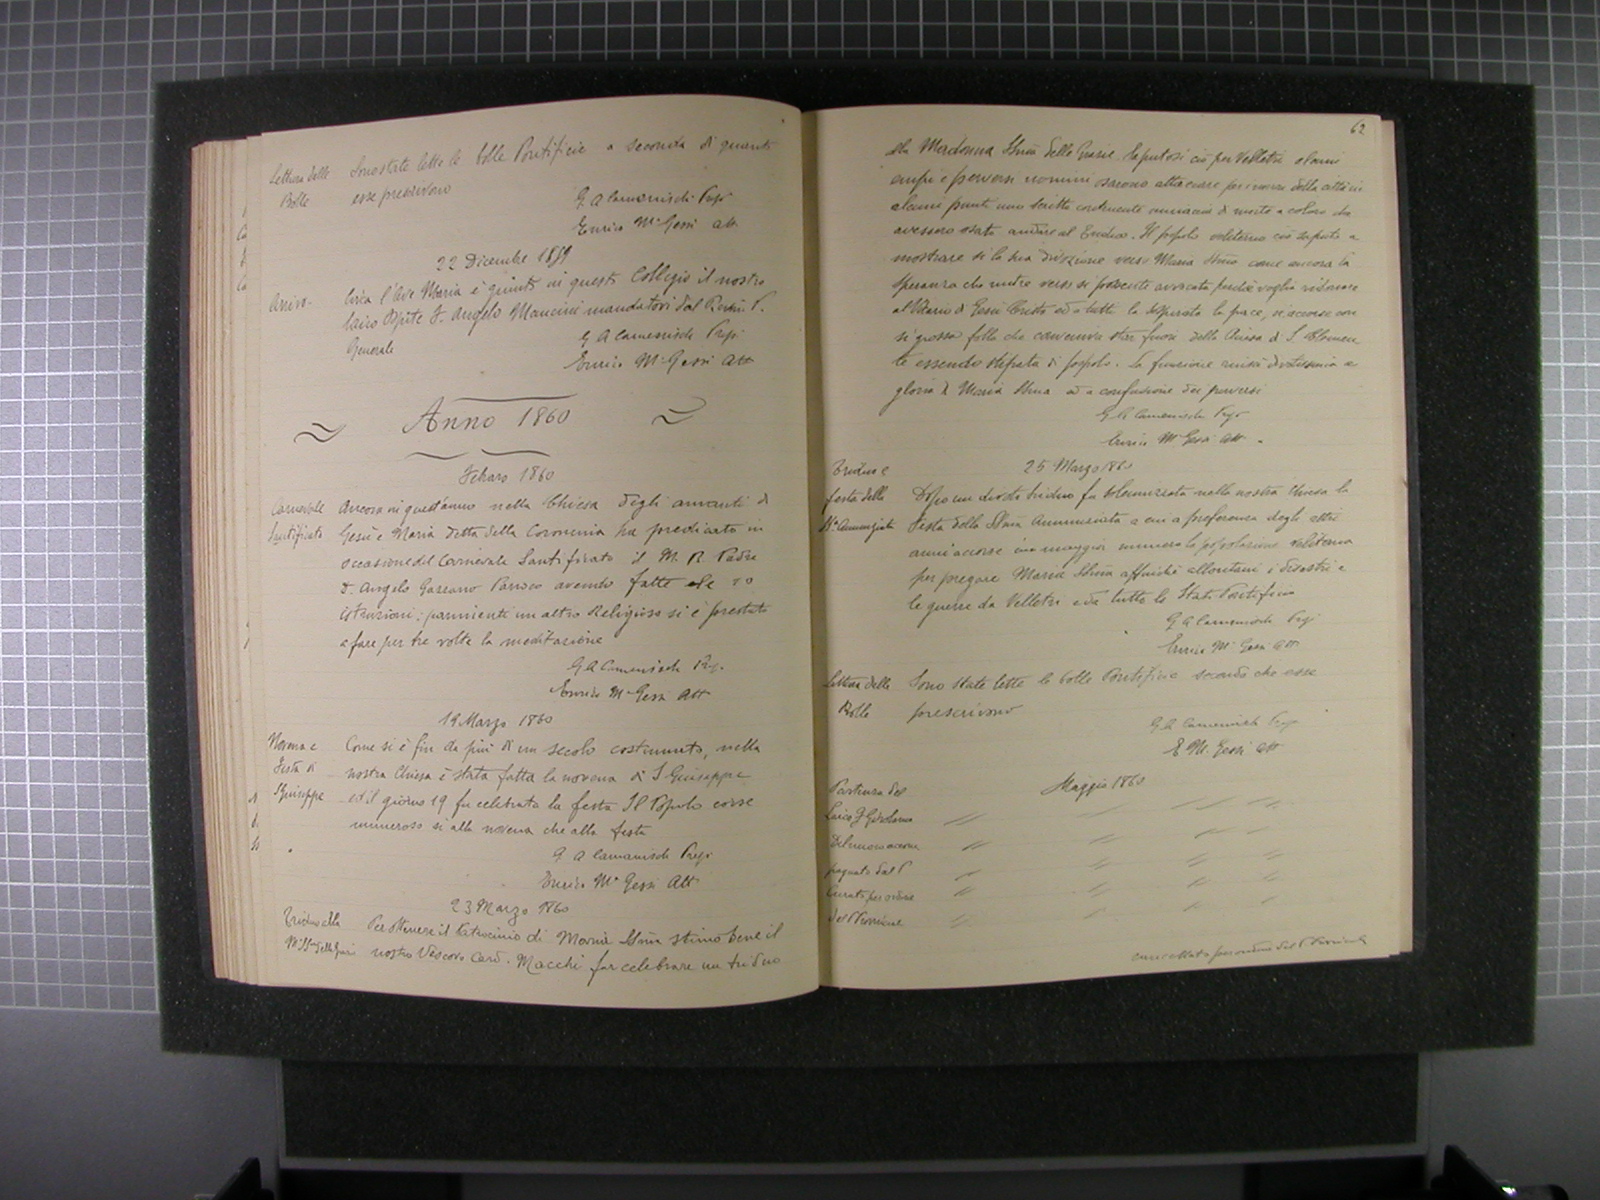 Lettura delle Sono state lette le bolle Pontificie a seconda di quanto
Bolle esse prescrivono
G A Camenisch Prep
Enrico M. Gessi Att
22 Dicembre 1859
Arrivo Circa l'Ave Maria è giunto in questo Collegio il nostro
laico Ospite F. Angelo Mancini mandatovi dal Rmo P.
Generale
G A Camenisch Prep
Enrico M. Gessi Att
Anno 1860
Febraro 1860
Carnevale Ancora in quest'anno nella Chiesa degli amanti di
Santificato Gesù e Maria detta della Coroncina ha predicato in
occasione del Carnevale Santificato il M. R. Padre
D. Angelo Gassano Parroco avendo fatte 10
istruzioni: parimenti un altro Religioso si è prestato
a fare per tre volte la meditazione
G A Camenisch Prep
Enrico M. Gessi Att
19 Marzo 1860
Novena e Come si è fin da più di un secolo costumato, nella
Festa di nostra Chiesa è stata fatta la novena di S Giuseppe
S Giuseppe ed il giorno 19 fu celebrata la festa Il Popolo corse
numeroso sì alla novena che alla festa
G A Camenisch Prep
Enrico M. Gessi Att
23 Marzo 1860
Triduo alla Per ottenere il Patrocinio di Maria Ssma stimò bene il
M SSma delle Grazie nostro Vescovo Card. Macchi far celebrare un triduo
62
alla Madonna Ssma delle Grazie. Saputosi ciò per Velletri alcuni
empi e perversi uomini osarono attaccare per i muri della città in
alcuni punti uno scritto contenente minaccie di morte a coloro che
avessero osato andare al Triduo. Il popolo veliterno ciò saputo a
mostrare sì la sua divozione verso Maria Ssma come ancora la
speranza che nutre verso sì possente avvocata perchè voglia ridonare
al Vicario di Gesù Cristo ed a tutti la desiderata pace, vi accorse con
sì grossa folla che conveniva star fuori della Chiesa di S. Clemen
te essendo stipata di popolo. La funzione riuscì divotissima a
gloria di Maria Ssma ed a confusione dei perversi
G A Camenisch Prep
Enrico M. Gessi Att
25 Marzo 1860
Triduo e Dopo un divoto triduo fu solennizzata nella nostra Chiesa la
festa della Festa della Ssma Annunziata a cui a preferenza degli altri
Ssma Annunziata anni accorse in maggior numero la popolazione veliterna
per pregare Maria Ssma affinchè allontani i disastri e
le guerre da Velletri e da tutto lo Stato Pontificio
G A Camenisch Prep
Enrico M. Gessi Att
Lettura delle Sono state lette le bolle Pontificie secondo che esse
Bolle prescrivono
G A Camenisch Prep
E M. Gessi Att
Maggio 1860
Partenza del
Laico F Girolamo
pagato dal P
Curato per ordine
del P Provinciale
cancellato per ordine del P Provinciale